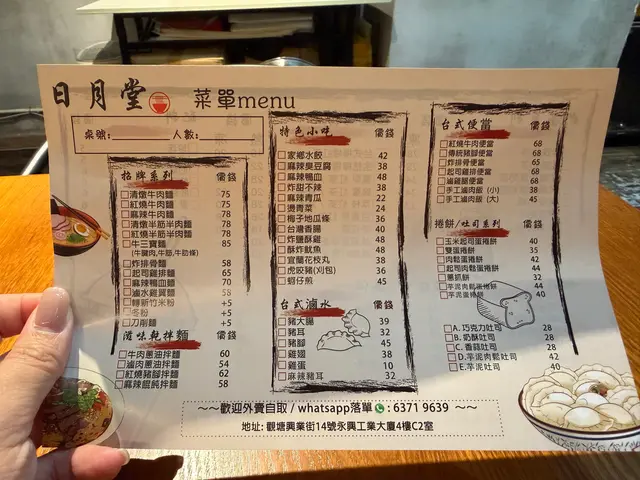 日月堂 菜單menu
桌號: 人數:
招牌系列 價錢
清燉牛肉麵 75
紅燒牛肉麵 75
麻辣牛肉麵 78
清燉半筋半肉麵 78
紅燒半筋半肉麵 78
牛三寶麵 85
(牛腱肉,牛筋,牛肋條)
炸排骨麵 58
起司雞排麵 65
麻辣鴨血麵 70
滷水雞翼麵 58
轉新竹米粉 +5
冬粉 +5
刀削麵 +5
滋味乾拌麵 價錢
牛肉蔥油拌麵 60
滷肉蔥油拌麵 54
紅燒豬腳拌麵 62
麻辣餛飩拌麵 58
特色小吃 價錢
家鄉水餃 42
麻辣臭豆腐 38
麻辣鴨血 48
炸甜不辣 38
麻辣青瓜 22
燙青菜 24
梅子地瓜條 36
台灣香腸 40
炸鹽酥雞 48
酥炸魷魚 48
宜蘭花枝丸 38
虎咬豬(刈包) 36
蚵仔煎 45
台式滷水 價錢
豬大腸 39
豬耳 32
豬腳 45
雞翅 38
雞蛋 10
麻辣豬耳 32
台式便當 價錢
紅燒牛肉便當 68
傳統豬腳便當 68
炸排骨便當 65
起司雞排便當 68
滷雞腿便當 68
手工滷肉飯 (小) 38
手工滷肉飯 (大) 45
捲餅/吐司系列 價錢
玉米起司蛋捲餅 40
雙蛋捲餅 35
肉鬆蛋捲餅 42
起司肉鬆蛋捲餅 44
蔥抓餅 32
芋泥肉鬆蛋捲餅 44
芋泥蛋捲餅 40
A. 巧克力吐司 28
B. 奶酥吐司 28
C. 香蒜吐司 28
D. 芋泥肉鬆吐司 42
E. 芋泥吐司 40
~~歡迎外賣自取 / whatsapp落單 : 6371 9639 ~~
地址: 觀塘興業街14號永興工業大廈4樓C2室